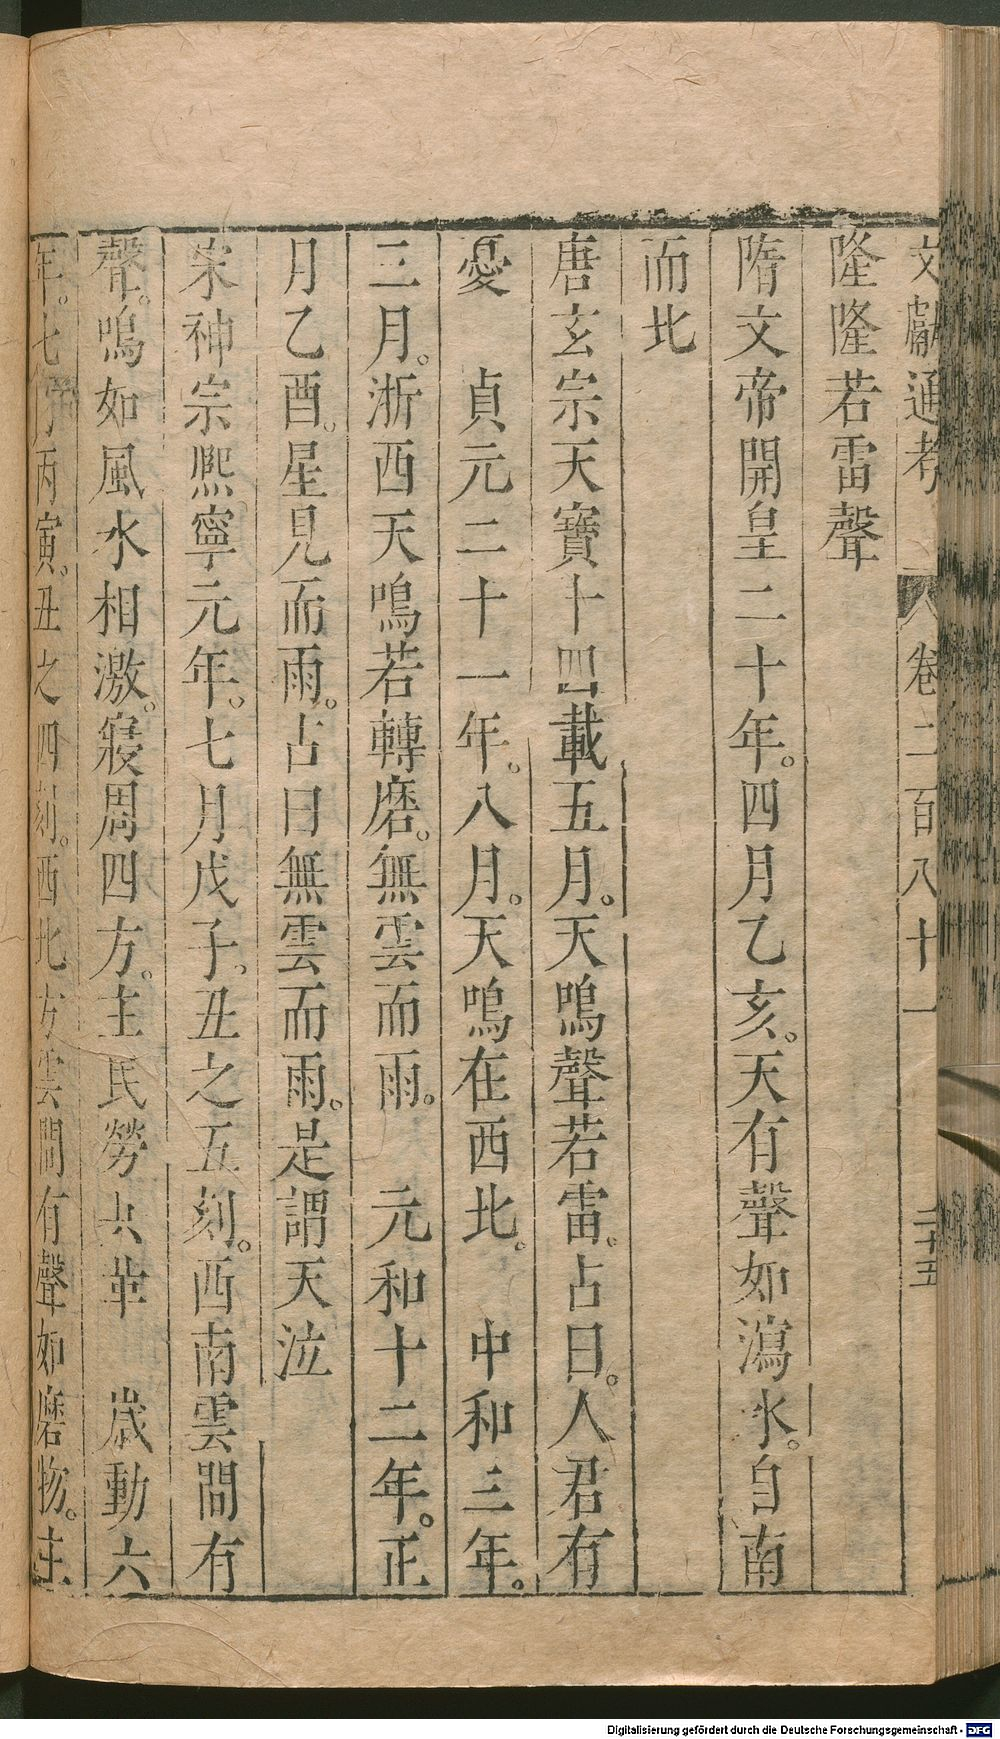 文獻通考 卷二百八十一 二十五
隆隆若雷聲
隋文帝開皇二十年。四月乙亥。天有聲如瀉水。自南
而北
唐玄宗天寶十四載五月。天鳴聲若雷。占曰。人君有
憂 貞元二十一年。八月。天鳴在西北。 中和三年。
三月。浙西天鳴若轉磨。無雲而雨。 元和十二年。正
月乙酉。星見而雨。占曰無雲而雨。是謂天泣
宋神宗熙寧元年。七月戊子。丑之五刻。西南雲間有
聲。鳴如風水相激。寖周四方。主民勞兵革 歲動六
年。七月丙寅。丑之四刻。西北方雲間有聲如磨物。主
Digitalisierung gefördert durch die Deutsche Forschungsgemeinschaft - DFG